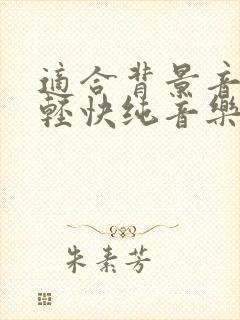 適合背景音
輕快纯音樂
朱素芳